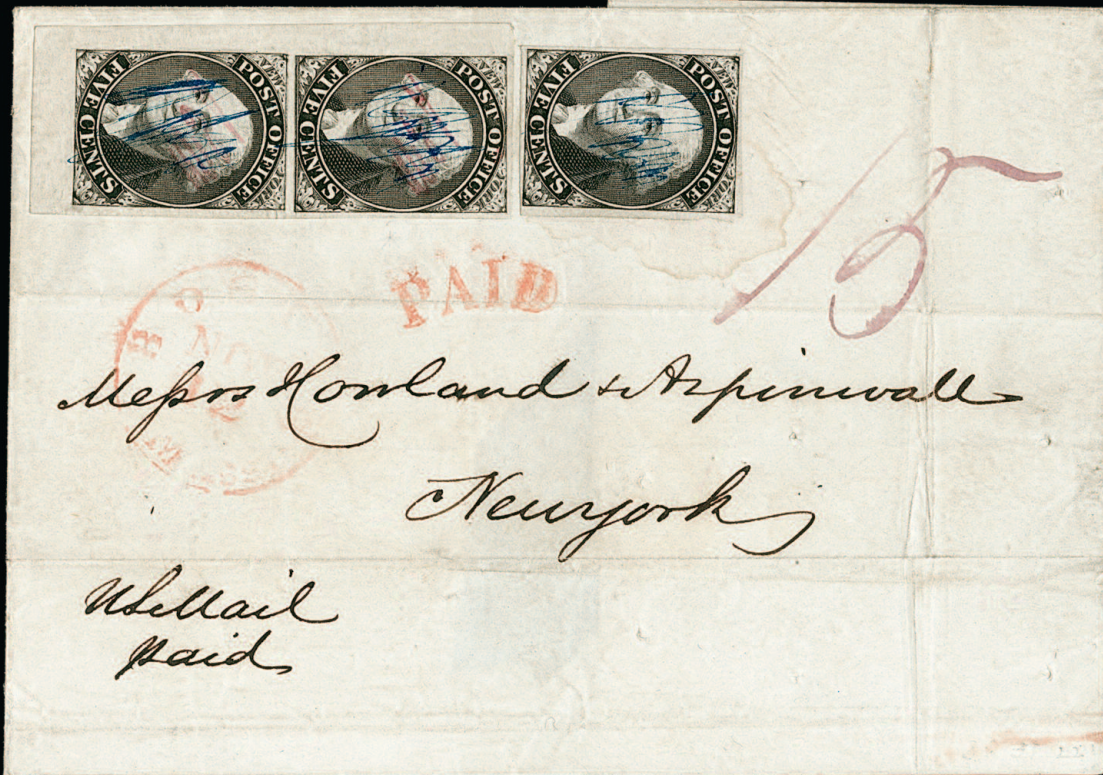 POST OFFICE FIVE CENTS
POST OFFICE FIVE CENTS
POST OFFICE FIVE CENTS
15
PAID
BO
NOV
Messrs Howland & Aspinwall
New york
US Mail
paid